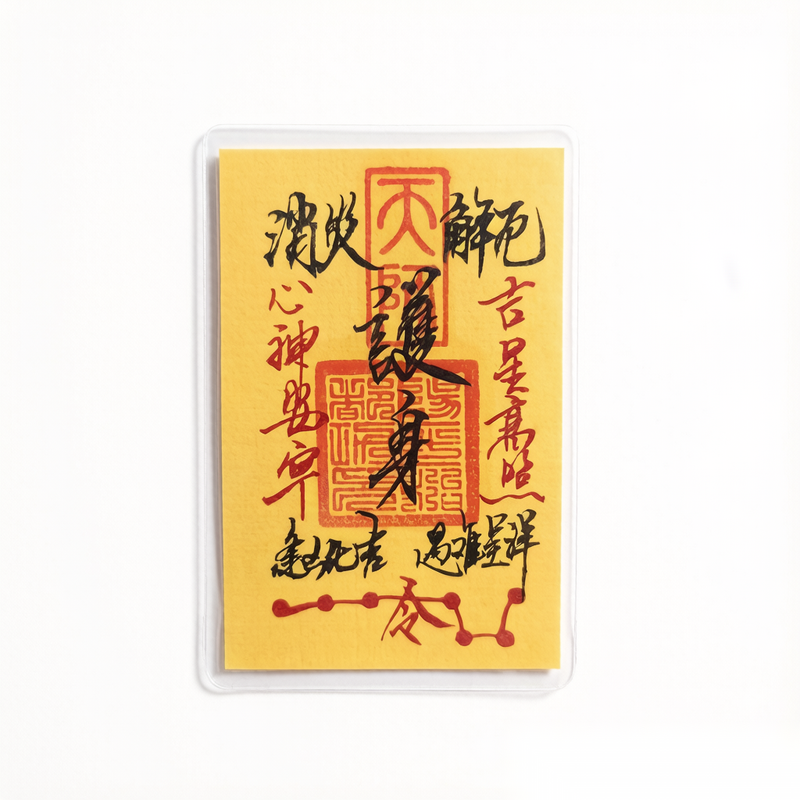 消災 解厄
天師
護身
吉星高照
心神安寧
逢凶化吉 遇難呈祥
令